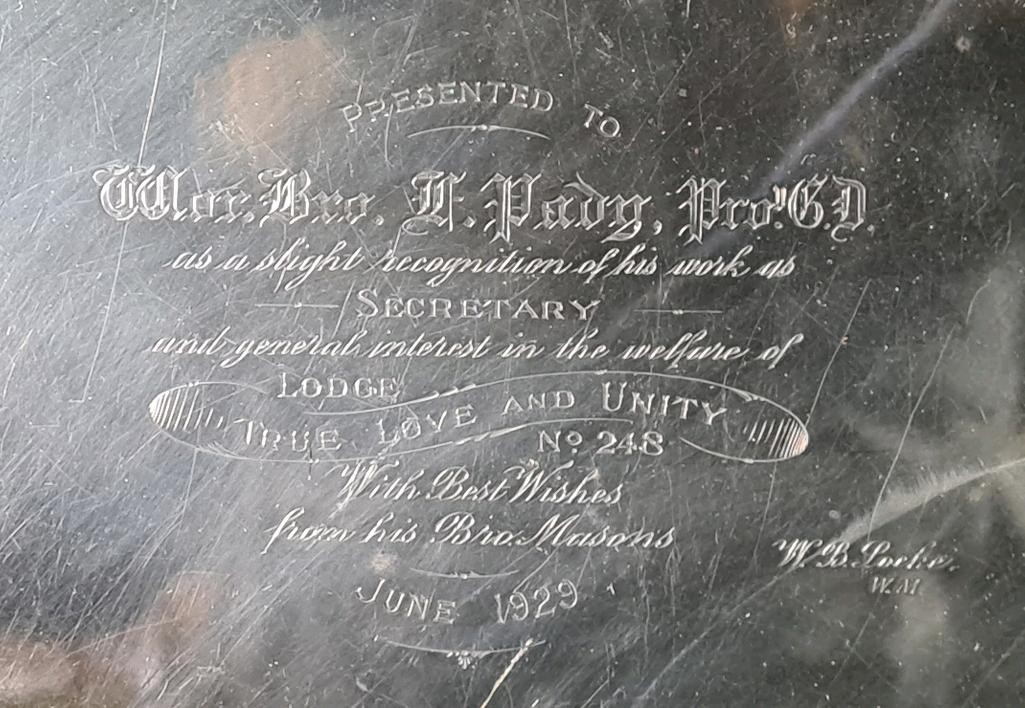 PRESENTED TO
Wor. Bro. F. Pady, Prov. G.D.
as a slight recognition of his work as
SECRETARY
and general interest in the welfare of
LODGE
TRUE LOVE AND UNITY
No. 248
With Best Wishes
from his Bro. Masons
JUNE 1929
W. B. Locke,
W.M